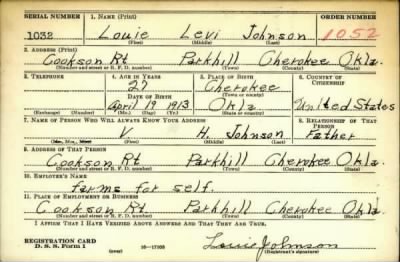 SERIAL NUMBER 1. NAME (Print) ORDER NUMBER
1032 Louie Levi Johnson 1052
(First) (Middle) (Last)
2. ADDRESS (Print)
Cookson Rt Parkhill Cherokee Okla.
(Number and street or R. F. D. number) (Town) (County) (State)
3. TELEPHONE 4. AGE IN YEARS 5. PLACE OF BIRTH 6. COUNTRY OF CITIZENSHIP
27 Cherokee
DATE OF BIRTH (Town or county)
April 19 1913 Okla United States
(Exchange) (Number) (Mo.) (Day) (Yr.) (State or country)
7. NAME OF PERSON WHO WILL ALWAYS KNOW YOUR ADDRESS 8. RELATIONSHIP OF THAT PERSON
V. H. Johnson Father
(Mr., Mrs., Miss) (First) (Middle) (Last)
9. ADDRESS OF THAT PERSON
Cookson Rt. Parkhill Cherokee Okla.
(Number and street or R. F. D. number) (Town) (County) (State)
10. EMPLOYER'S NAME
farms for self.
11. PLACE OF EMPLOYMENT OR BUSINESS
Cookson Rt Parkhill Cherokee Okla.
(Number and street or R. F. D. number) (Town) (County) (State)
I AFFIRM THAT I HAVE VERIFIED ABOVE ANSWERS AND THAT THEY ARE TRUE.
REGISTRATION CARD
D. S. S. Form 1 (over) 16—17105 Louie Johnson
(Registrant's signature)